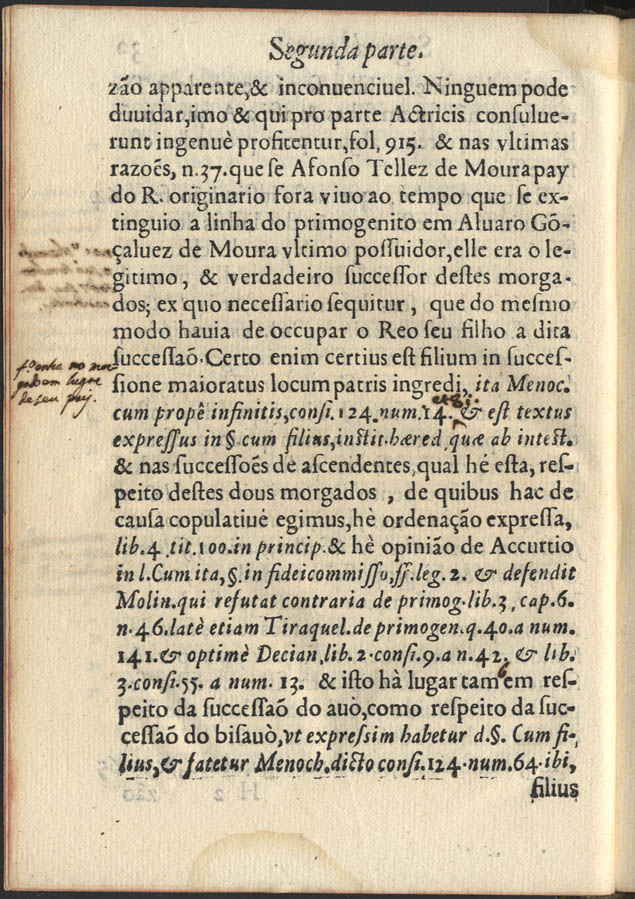 Segunda parte.
zão apparente,& inconuenciuel. Ninguem pode
duuidar,imo & qui pro parte Actricis consulue-
runt ingenuè profitentur,fol, 915. & nas vltimas
razoẽs, n.37.que se Afonso Tellez de Moura pay
do R. originario fora viuo ao tempo que se ex-
tinguio a linha do primogenito em Aluaro Gõ-
çaluez de Moura vltimo possuidor,elle era o le-
gitimo, & verdadeiro successor destes morga-
dos; ex quo necessario sequitur, que do mesmo
modo hauia de occupar o Reo seu filho a dita
successaõ. Certo enim certius est filium in succes-
sione maioratus locum patris ingredi, ita Menoc.
cum propè infinitis,consi.124.num.14. & est textus
expressus in §.cum filius,instit.hæred quæ ab intest.
& nas successoẽs de ascendentes,qual hé esta, res-
peito destes dous morgados , de quibus hac de
causa copulatiuè egimus,hè ordenação expressa,
lib.4 tit.100.in princip.& hè opinião de Accurtio
in l.Cum ita,§.in fideicommisso,ff.leg.2. & defendit
Molin.qui refutat contraria de primog.lib.3, cap.6.
n.46.latè etiam Tiraquel.de primogen.q.40.a num.
141.& optimè Decian,lib.2.consi.9.a n.42, & lib.
3.consi.55. a num. 13. & isto hà lugar tambem res-
peito da successaõ do auò,como respeito da suc-
cessaõ do bisauò,vt expressim habetur d.§. Cum fi-
lius,& fatetur Menoch.dicto consi.124.num.64.ibi,
filius
fº entra no mor
gado em lugar
de seu pay.